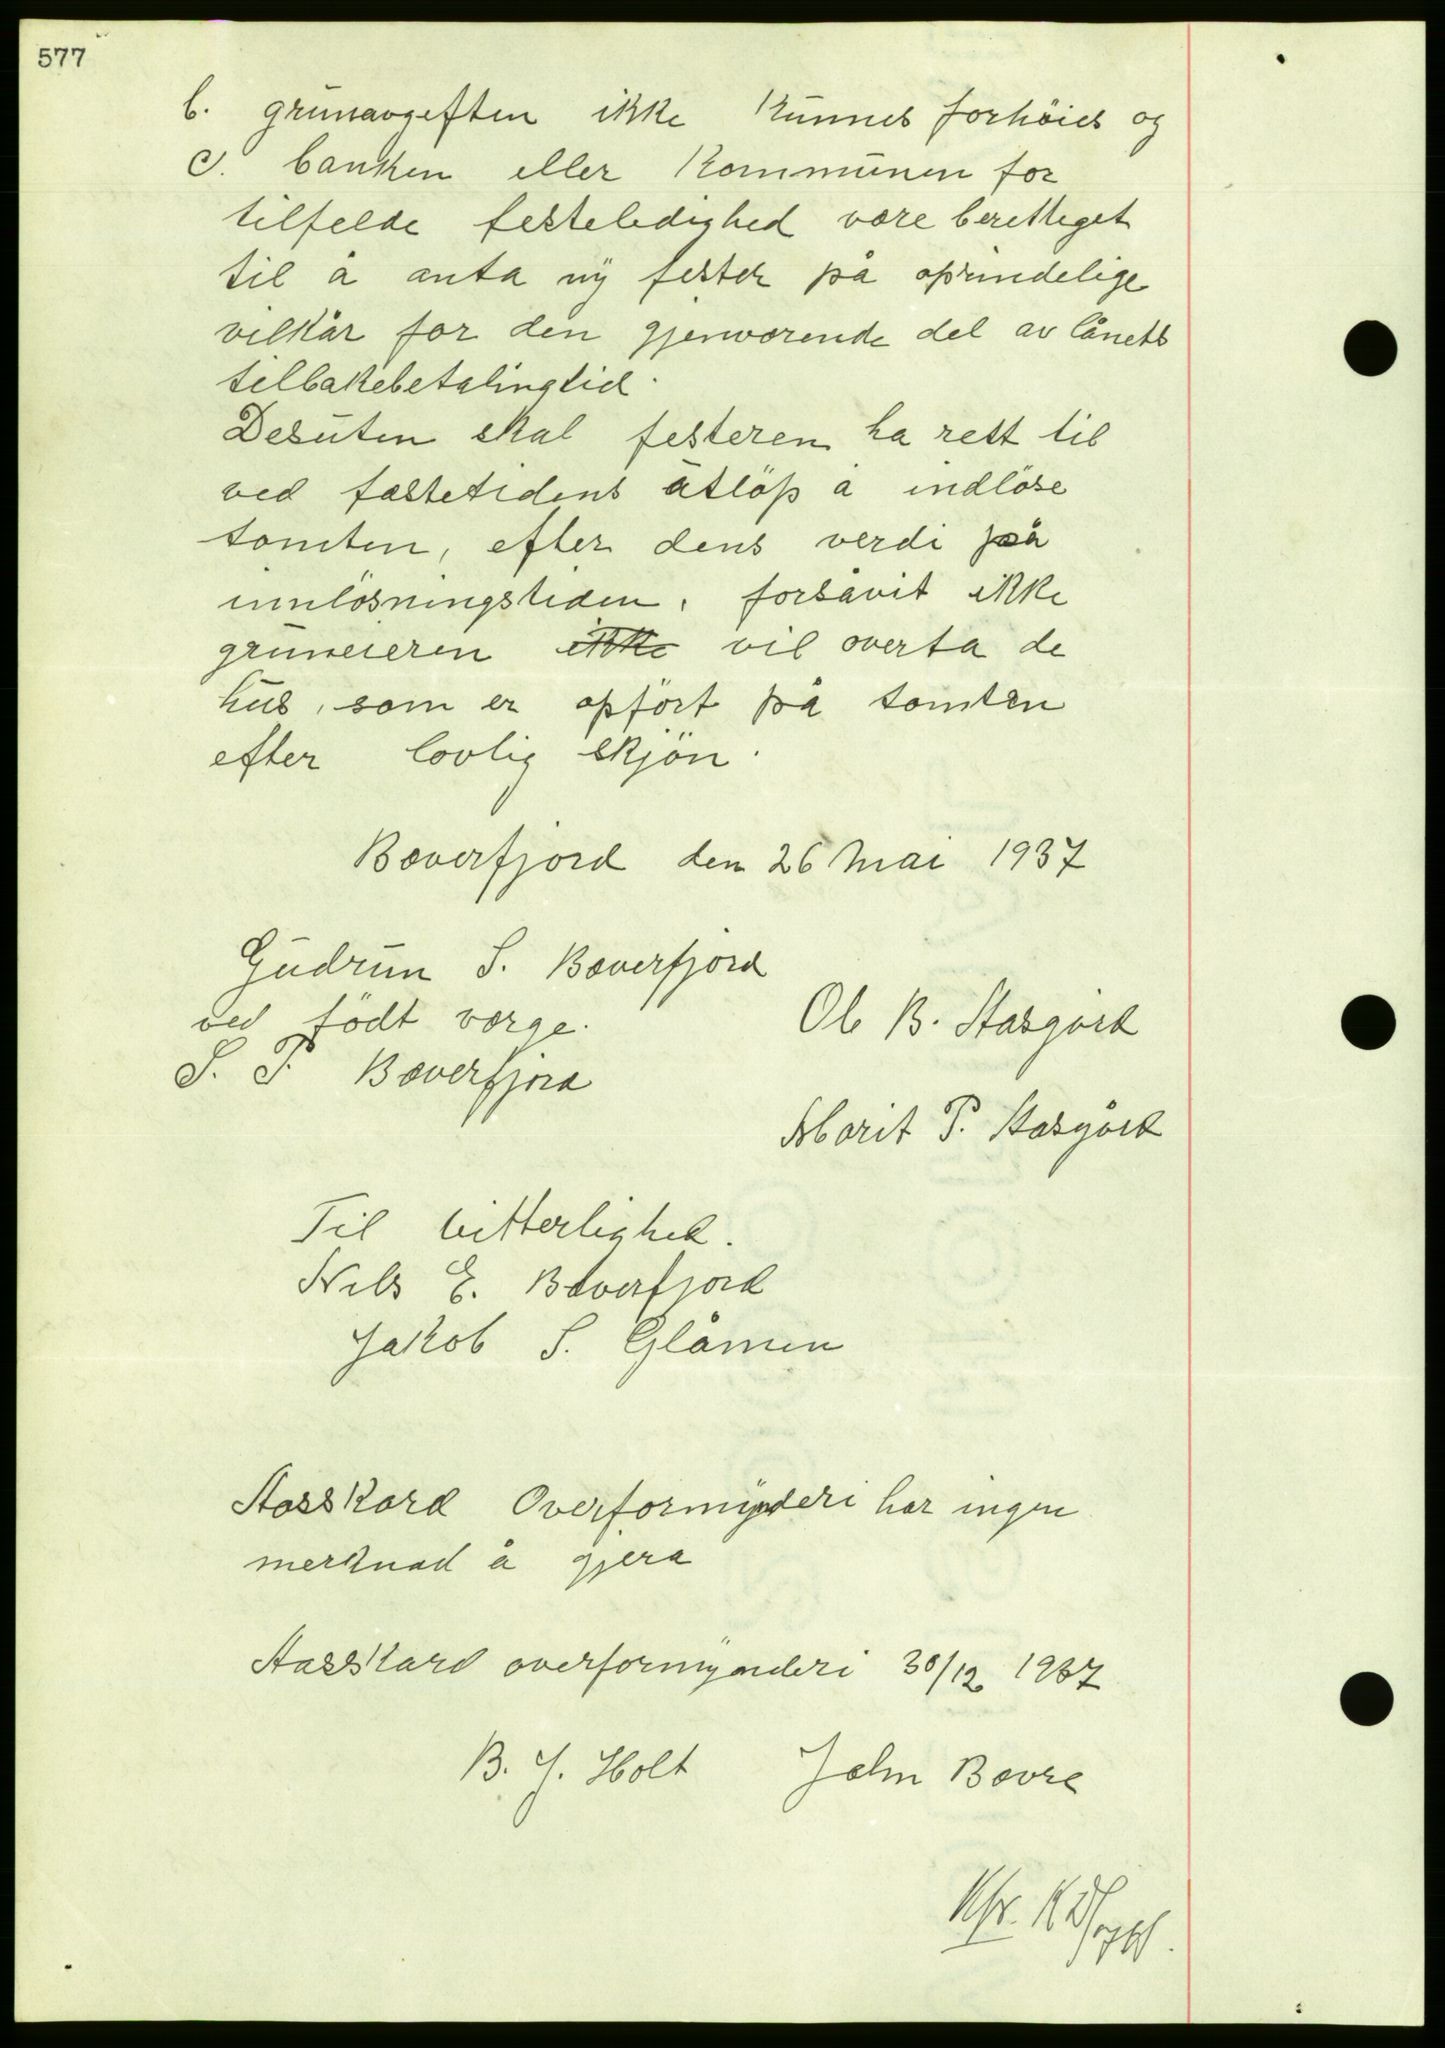 577
b. grunavgeften ikke kunnes forhöies og
c. banken eller kommunen for
tilfelde festeledighed være berettiget
til å anta ny fester på oprindelige
vilkår for den gjenværende del av lånets
tilbakebetalingtid.
Desuten skal festeren ha rett til
ved fæstetidens utlöp å indlöse
tomten, efter dens verdi på
innlösningstiden, forsåvit ikke
gruneieren ikke vil overta de
hus, som er opfört på tomten
efter lovlig skjön.
Bæverfjord den 26 Mai 1937
Gudrun S. Bæverfjord
ved födt værge.
S. P. Bæverfjord
Ole B. Stasgård
Marit P. Stasgård
Til vitterlighed.
Nils E. Bæverfjord
Jakob S. Glåmen
Åsskard Overformynderi har ingen
merknad å gjera
Aasskard overformynderi 30/12 1937
B. J. Holt John Bævre